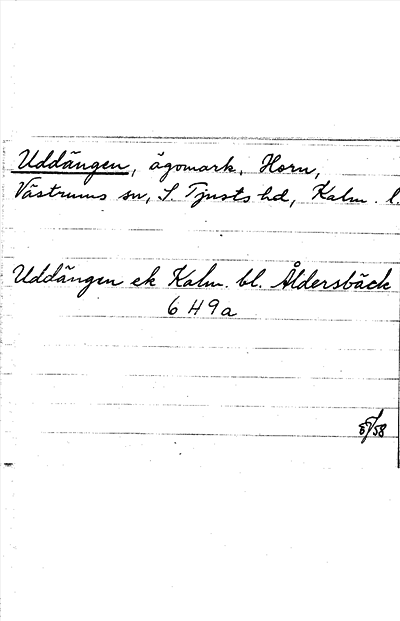 Uddängen, ägomark, Horn,
Västrums sn, S. Tjusts hd, Kalm. l.
Uddängen ek Kalm. bl. Åldersbäck
649a